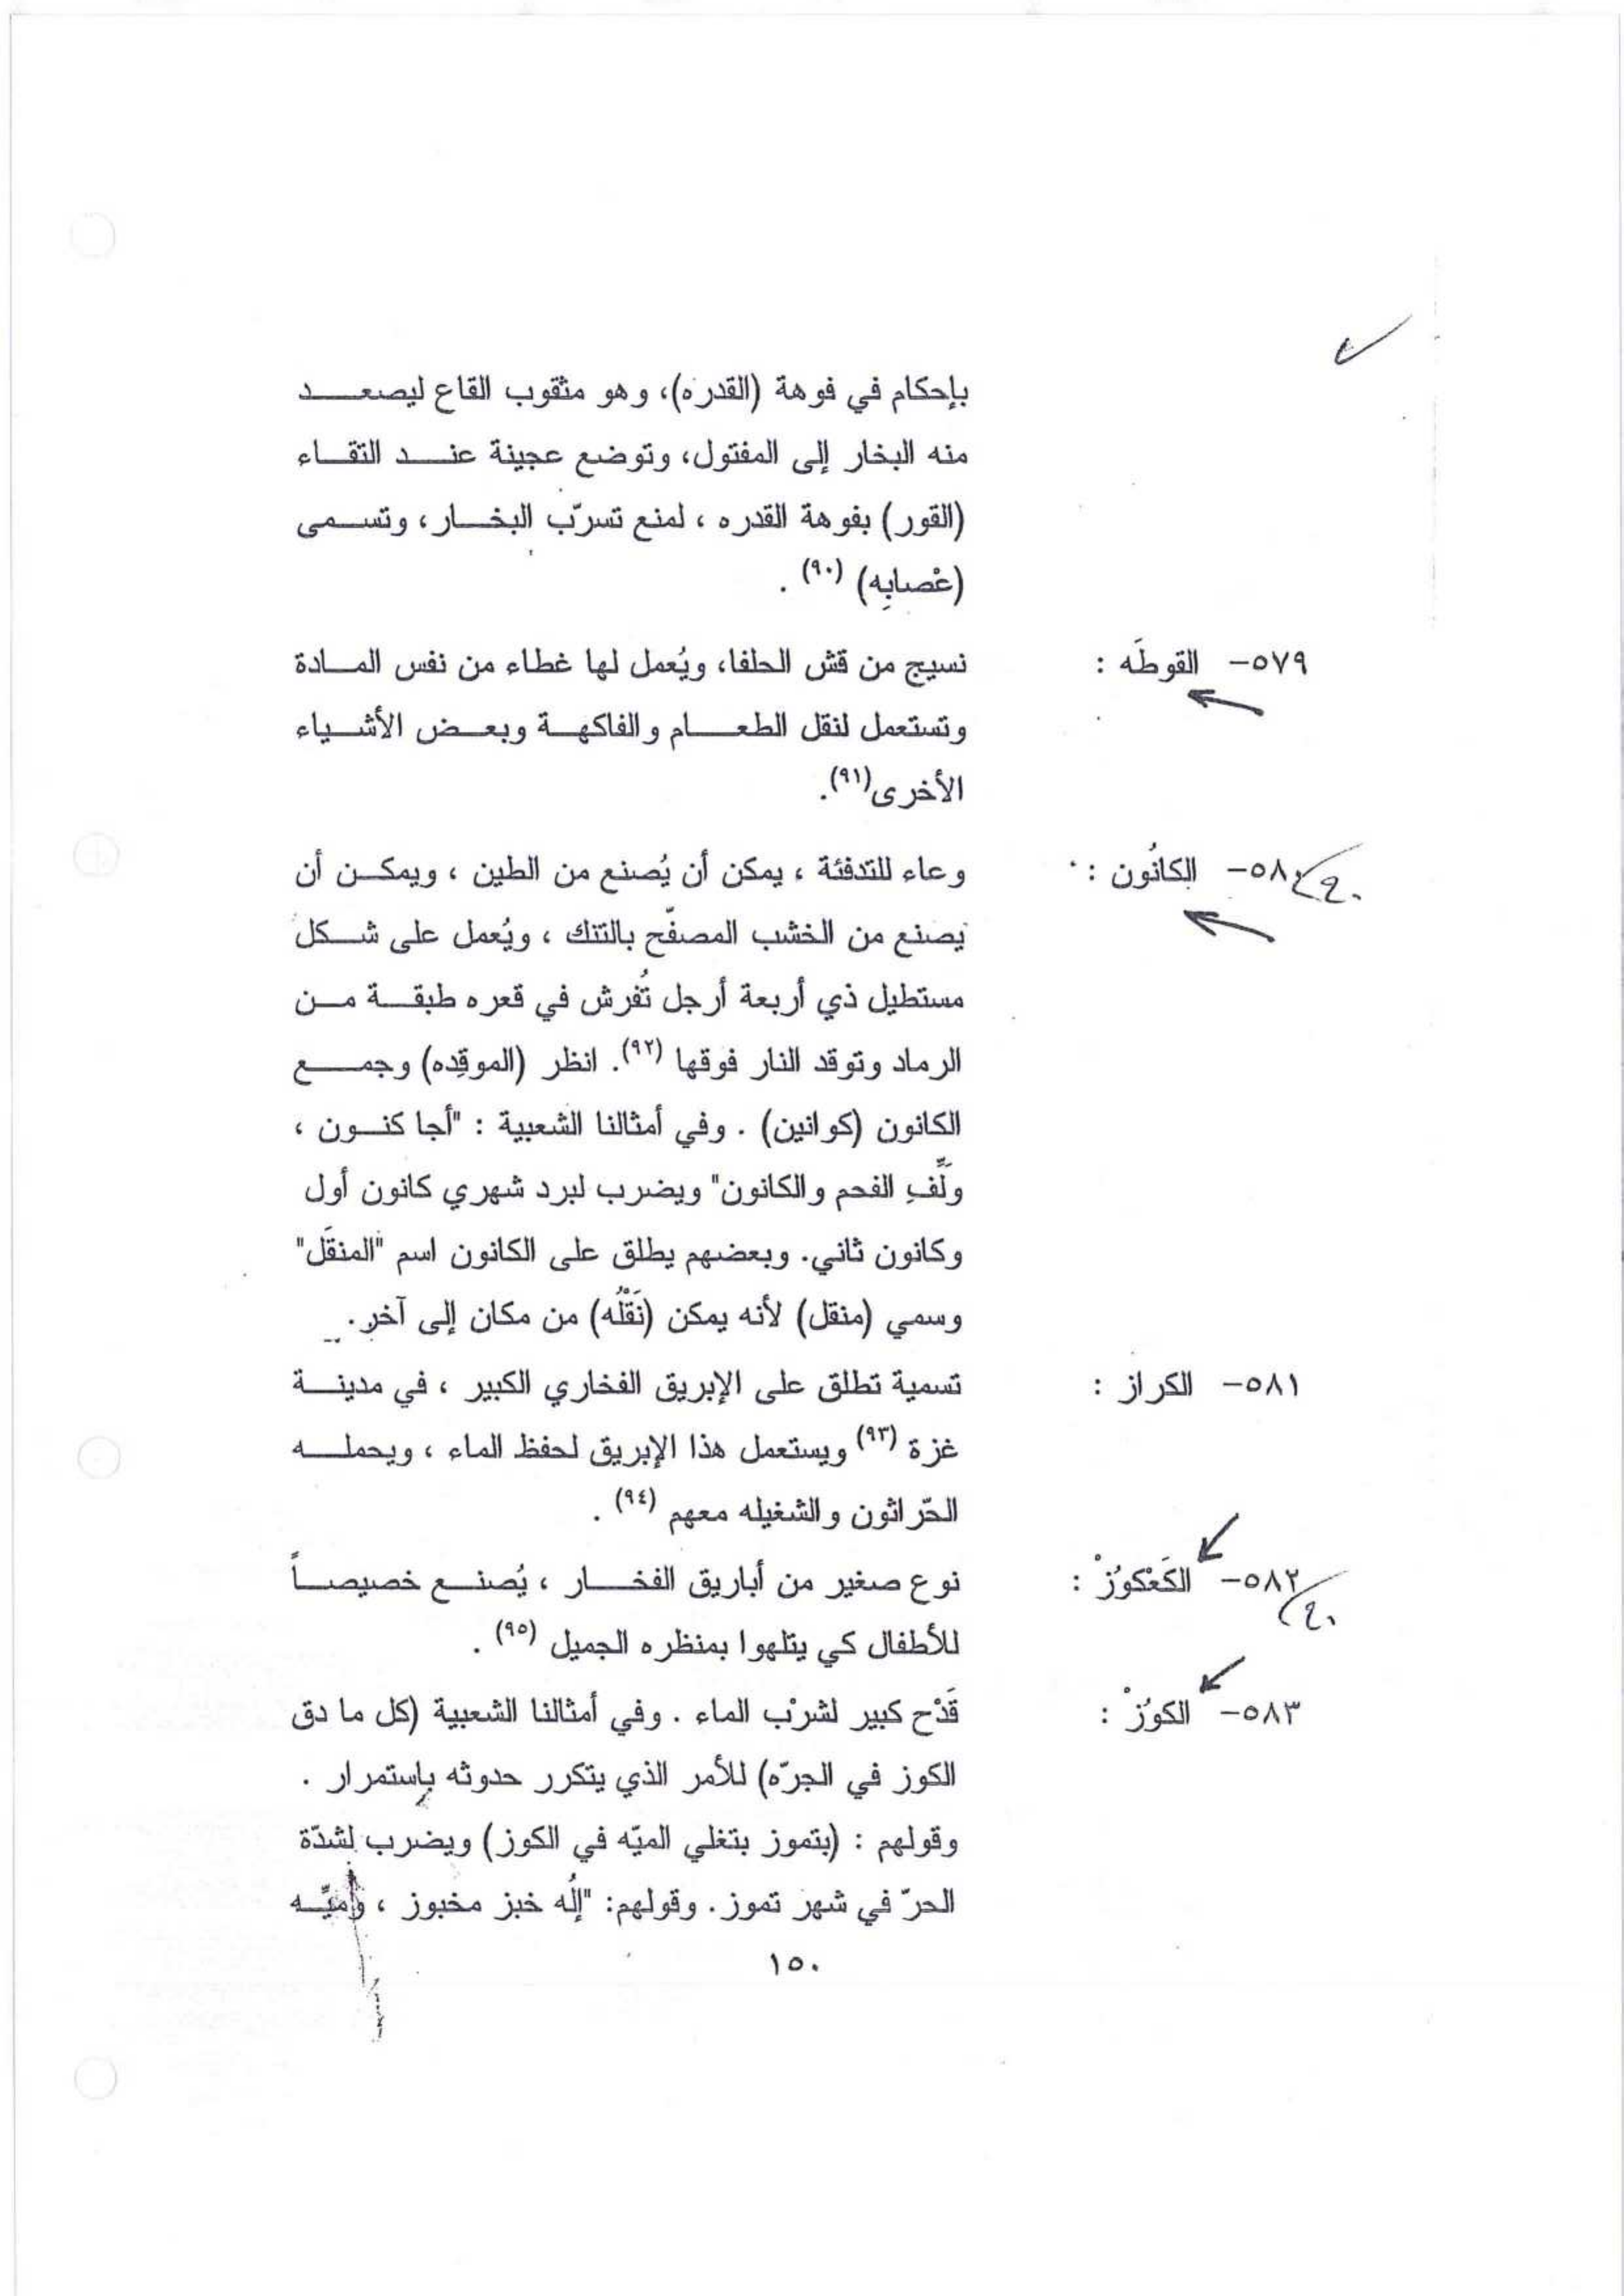 بإحكام في فوهة (القدره)، وهو مثقوب القاع ليصعد
منه البخار إلى المفتول، وتوضع عجينة عند التقاء
(القور) بفوهة القدره ، لمنع تسرّب البخار، وتسمى
(عْصابِه) (٩٠) .
٥٧٩- القوطَه : نسيج من قش الحلفا، ويُعمل لها غطاء من نفس المادة
وتستعمل لنقل الطعام والفاكهة وبعض الأشياء
الأخرى(٩١).
٥٨٠- الكانُون : وعاء للتدفئة ، يمكن أن يُصنع من الطين ، ويمكن أن
يصنع من الخشب المصفّح بالتنك ، ويُعمل على شكل
مستطيل ذي أربعة أرجل تُفرش في قعره طبقة من
الرماد وتوقد النار فوقها (٩٢). انظر (الموقِده) وجمع
الكانون (كوانين) . وفي أمثالنا الشعبية : "أجا كنون ،
ولَّفِ الفحم والكانون" ويضرب لبرد شهري كانون أول
وكانون ثاني. وبعضهم يطلق على الكانون اسم "المنقَل"
وسمي (منقل) لأنه يمكن (نَقْلُه) من مكان إلى آخر.
٥٨١- الكراز : تسمية تطلق على الإبريق الفخاري الكبير ، في مدينة
غزة (٩٣) ويستعمل هذا الإبريق لحفظ الماء ، ويحمله
الحّراثون والشغيله معهم (٩٤) .
٥٨٢- الكَعْكوُزْ : نوع صغير من أباريق الفخار ، يُصنع خصيصاً
للأطفال كي يتلهوا بمنظره الجميل (٩٥) .
٥٨٣- الكوُزْ : قَدْح كبير لشرْب الماء . وفي أمثالنا الشعبية (كل ما دق
الكوز في الجرّه) للأمر الذي يتكرر حدوثه بإستمرار .
وقولهم : (بتموز بتغلي الميّه في الكوز) ويضرب لشدّة
الحرّ في شهر تموز. وقولهم: "إلُه خبز مخبوز ، وميِّه
١٥٠